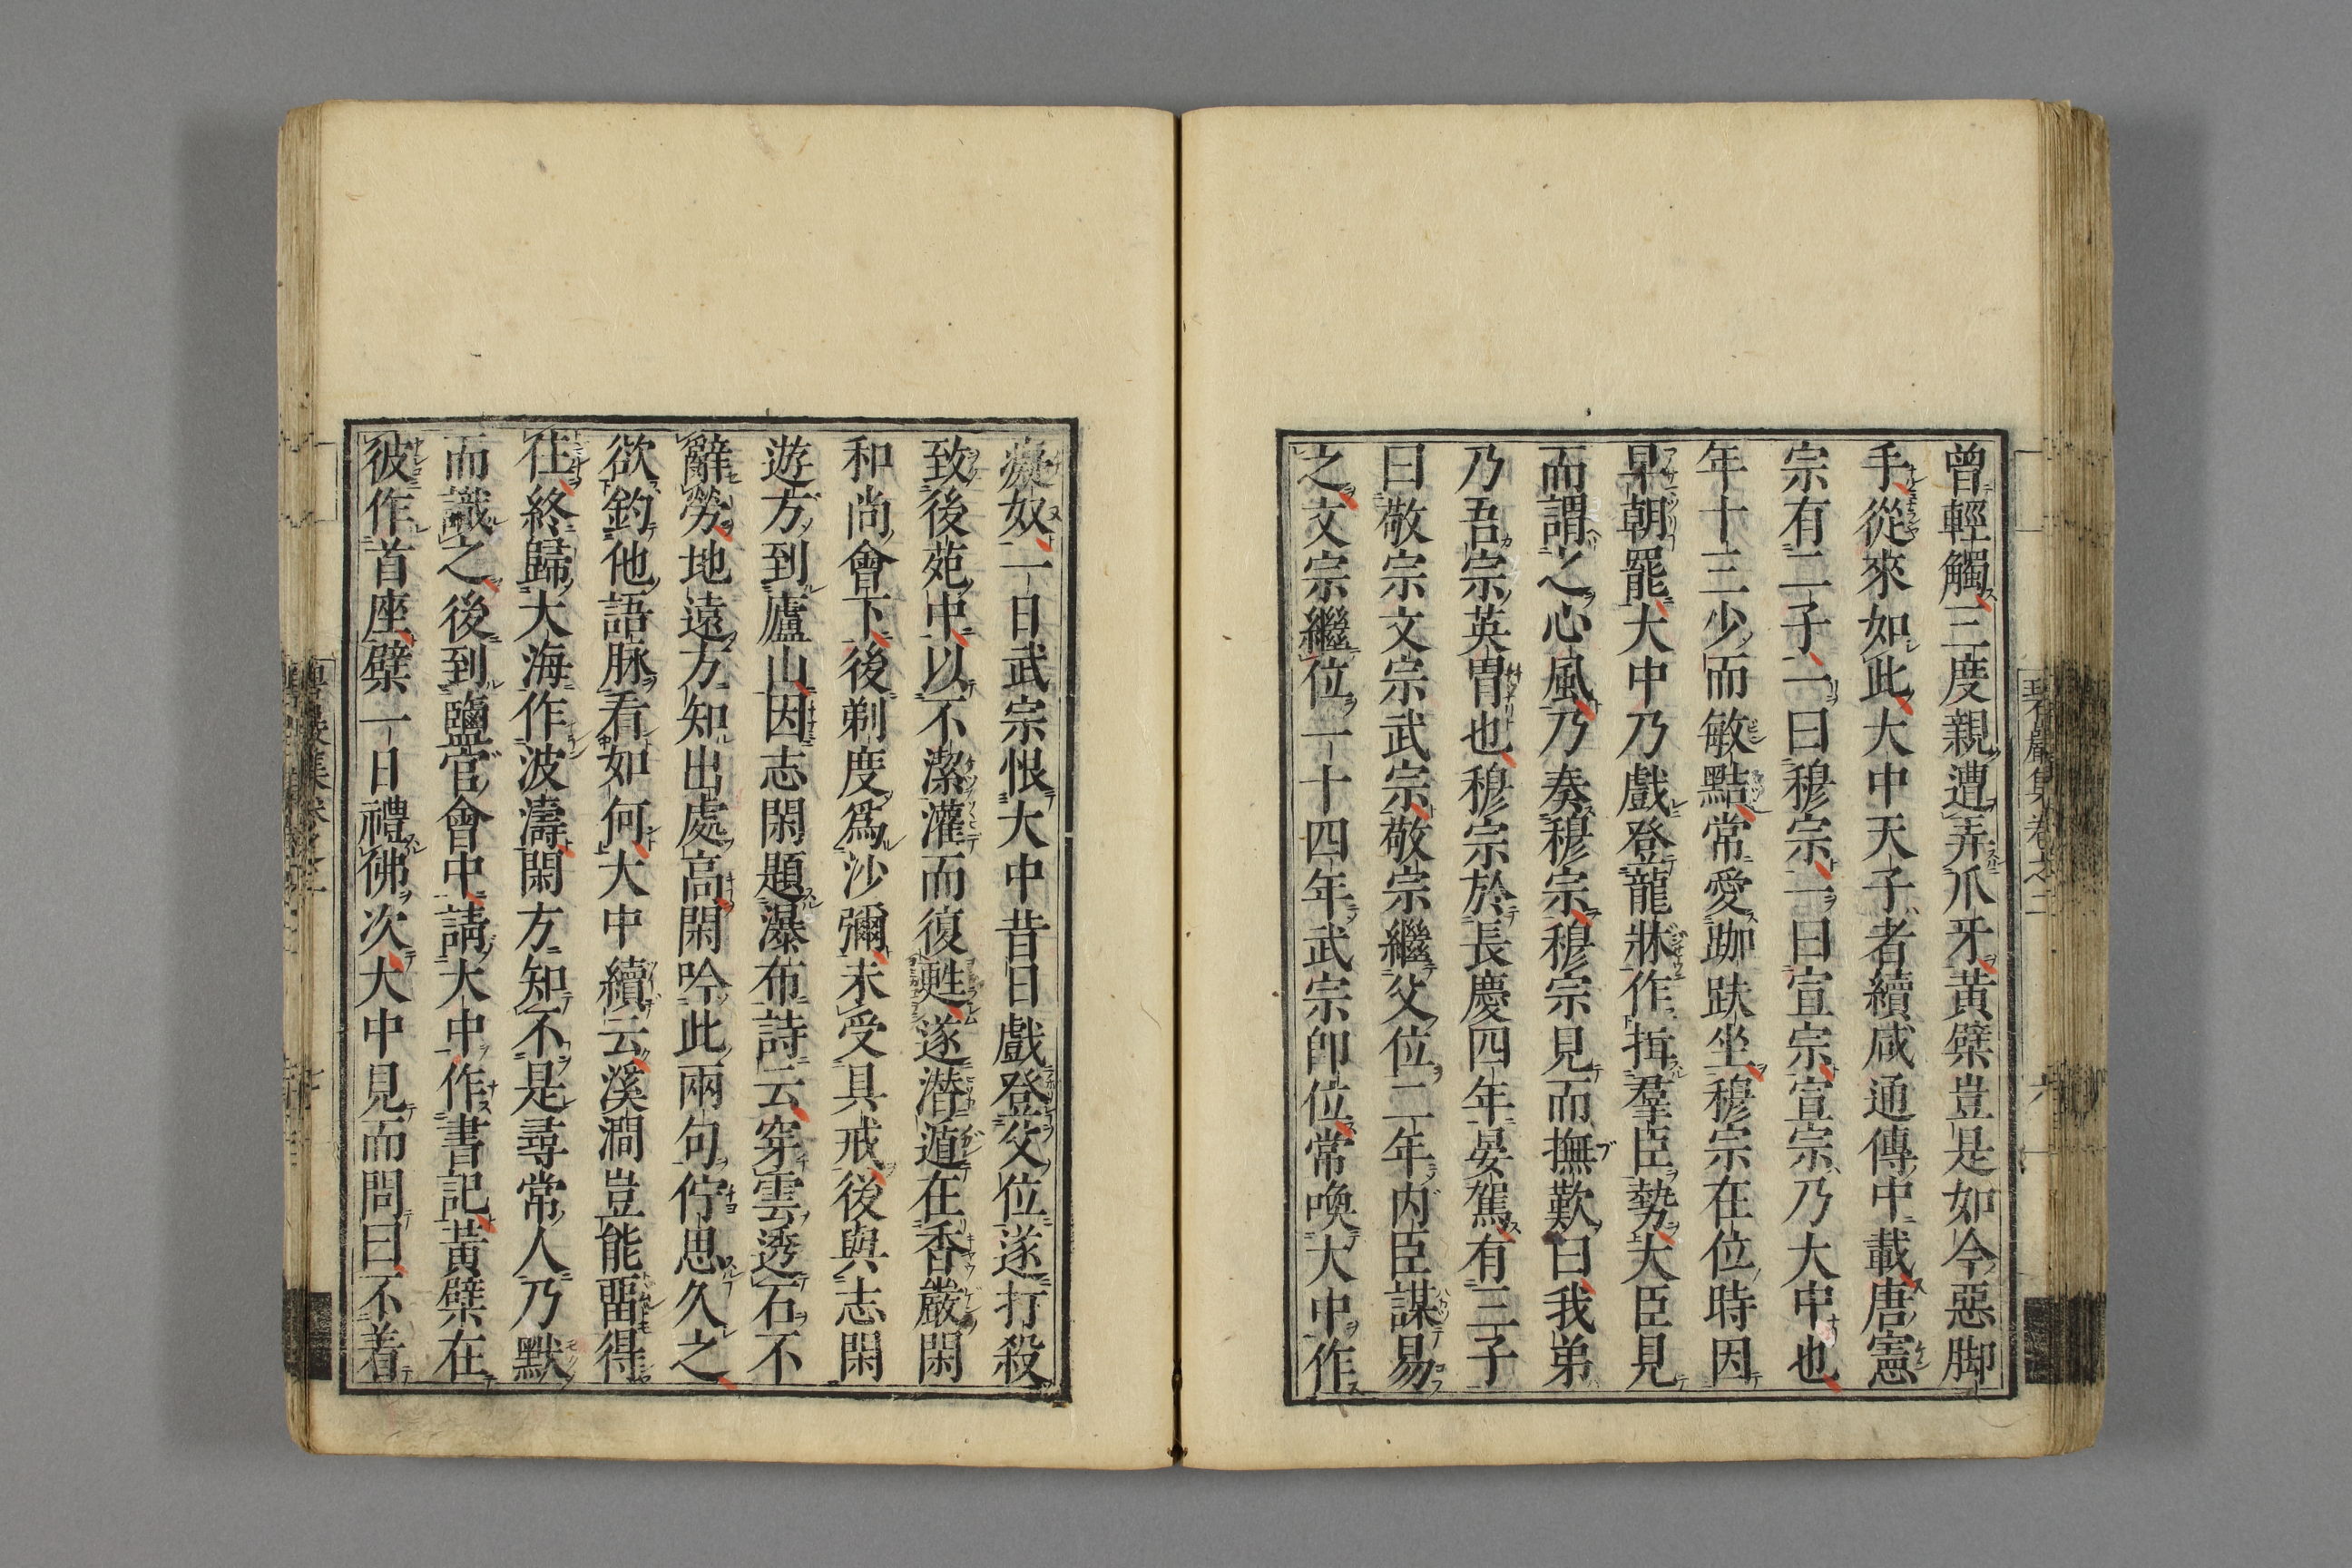 曾輕觸三度親遭弄爪牙黃檗豈是如今惡脚
手從來如此大中天子者續咸通傳中載唐憲
宗有二子一曰穆宗一曰宣宗宣宗乃大中也
年十三少而敏黠常愛跏趺坐穆宗在位時因
早朝罷大中乃戲登龍牀作揖羣臣勢大臣見
而謂之心風乃奏穆宗穆宗見而撫歎曰我弟
乃吾宗英冑也穆宗於長慶四年晏駕有三子
曰敬宗文宗武宗敬宗繼父位二年內臣謀易
之文宗繼位一十四年武宗卽位常喚大中作
癡奴一日武宗恨大中昔日戲登父位遂打殺
致後苑中以不潔灌而復甦遂潛遁在香嚴閑
和尚會下後剃度爲沙彌未受具戒後與志閑
遊方到廬山因志閑題瀑布詩云穿雲透石不
辭勞地遠方知出處高閑吟此兩句佇思久之
欲釣他語脉看如何大中續云溪澗豈能畱得
住終歸大海作波濤閑方知不是尋常人乃默
而識之後到鹽官會中請大中作書記黃檗在
彼作首座檗一日禮佛次大中見而問曰不着